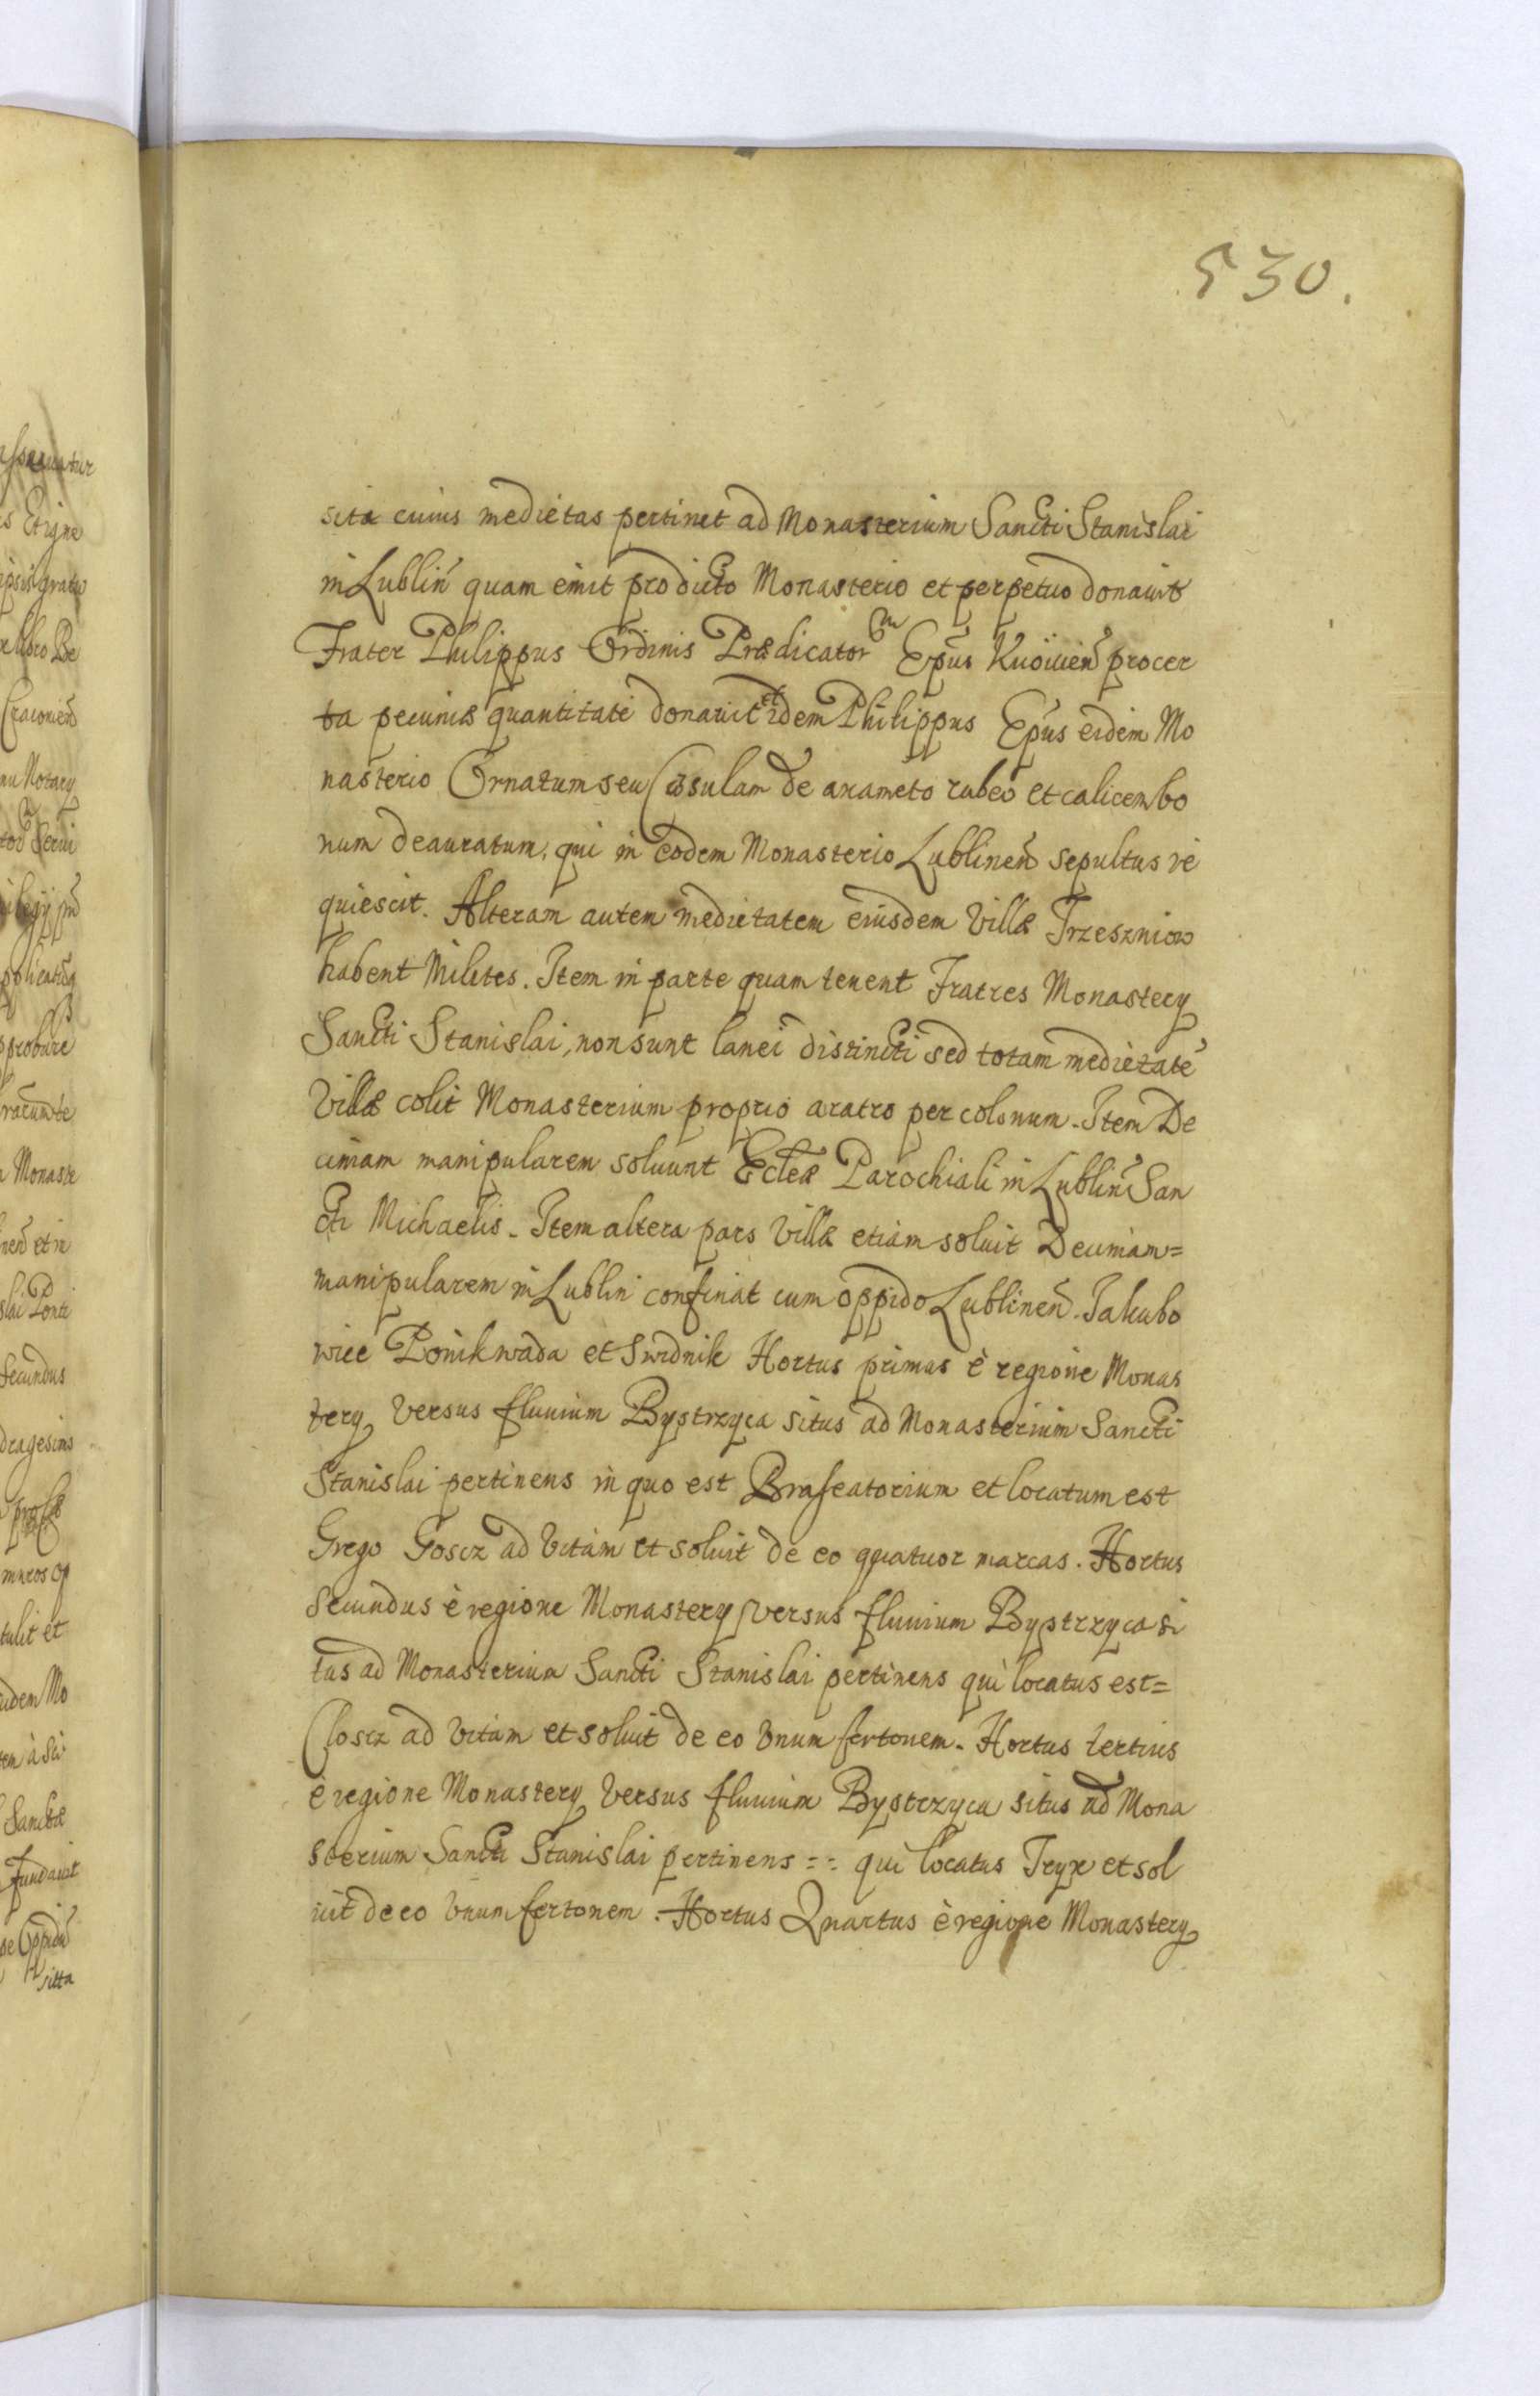 530.
sita cuius medietas pertinet ad Monasterium Sancti Stanislai
in Lublin̄ quam emit prodicto Monasterio et perpetuo donauit
Frater Philippus Ordinis Prædicator Ep̄us Kuoiuien̄ pro cer
ta pecuniæ quantitate donauit et idem Philippus Ep̄us eidem Mo
nasterio Ornatum seu Casulam de axameto rubeo et calicem bo
num deauratum, qui in eodem Monasterio Lublinen̄ sepultus re
quiescit. Alteram autem medietatem eiusdem Villæ Trzeszniow
habent Milites. Item in parte quam tenent Fratres Monastery
Sancti Stanislai, non sunt lanei distincti sed totam medietatē
Villæ colit Monasterium proprio aratro per colonum. Item De
cimam manipularem soluunt Ecclæ Parochiali in Lublin̄ San
cti Michaelis. Item altera pars Villæ etiam soluit Decimam=
manipularem in Lublin confinat cum oppido Lublinen̄. Jakubo
wice Ponikwada et Swidnik Hortus primus è regione Monas
tery versus fluuium Bystrzyca situs ad Monasterium Sancti
Stanislai pertinens in quo est Braseatorium et locatum est
Grego Goscz ad Vitam et soluit de eo quatuor marcas. Hortus
Secundus è regione Monastery versus fluuium Bystrzyca si
tus ad Monasterium Sancti Stanislai pertinens qui locatus est=
Closcz ad Vitam et soluit de eo Vnum fertonem. Hortus tertius
è regione Monastery Versus fluuium Bystrzyca situs ad Mona
sterium Sancti Stanislai pertinens == qui locatus Tryx et sol
uit de eo Vnum fertonem. Hortus Quartus è regione Monastery